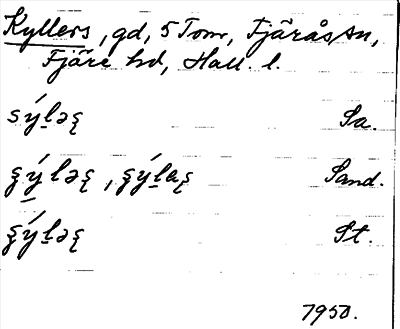 Kyllers, gd, 5 Tom, Fjärås sn,
Fjäre hd, Hall. l.
sý̱ḻəʂ Sa.
ʂý̱ləʂ, ʂýḻaʂ Sand.
ʂýḻəʂ St.
1950.